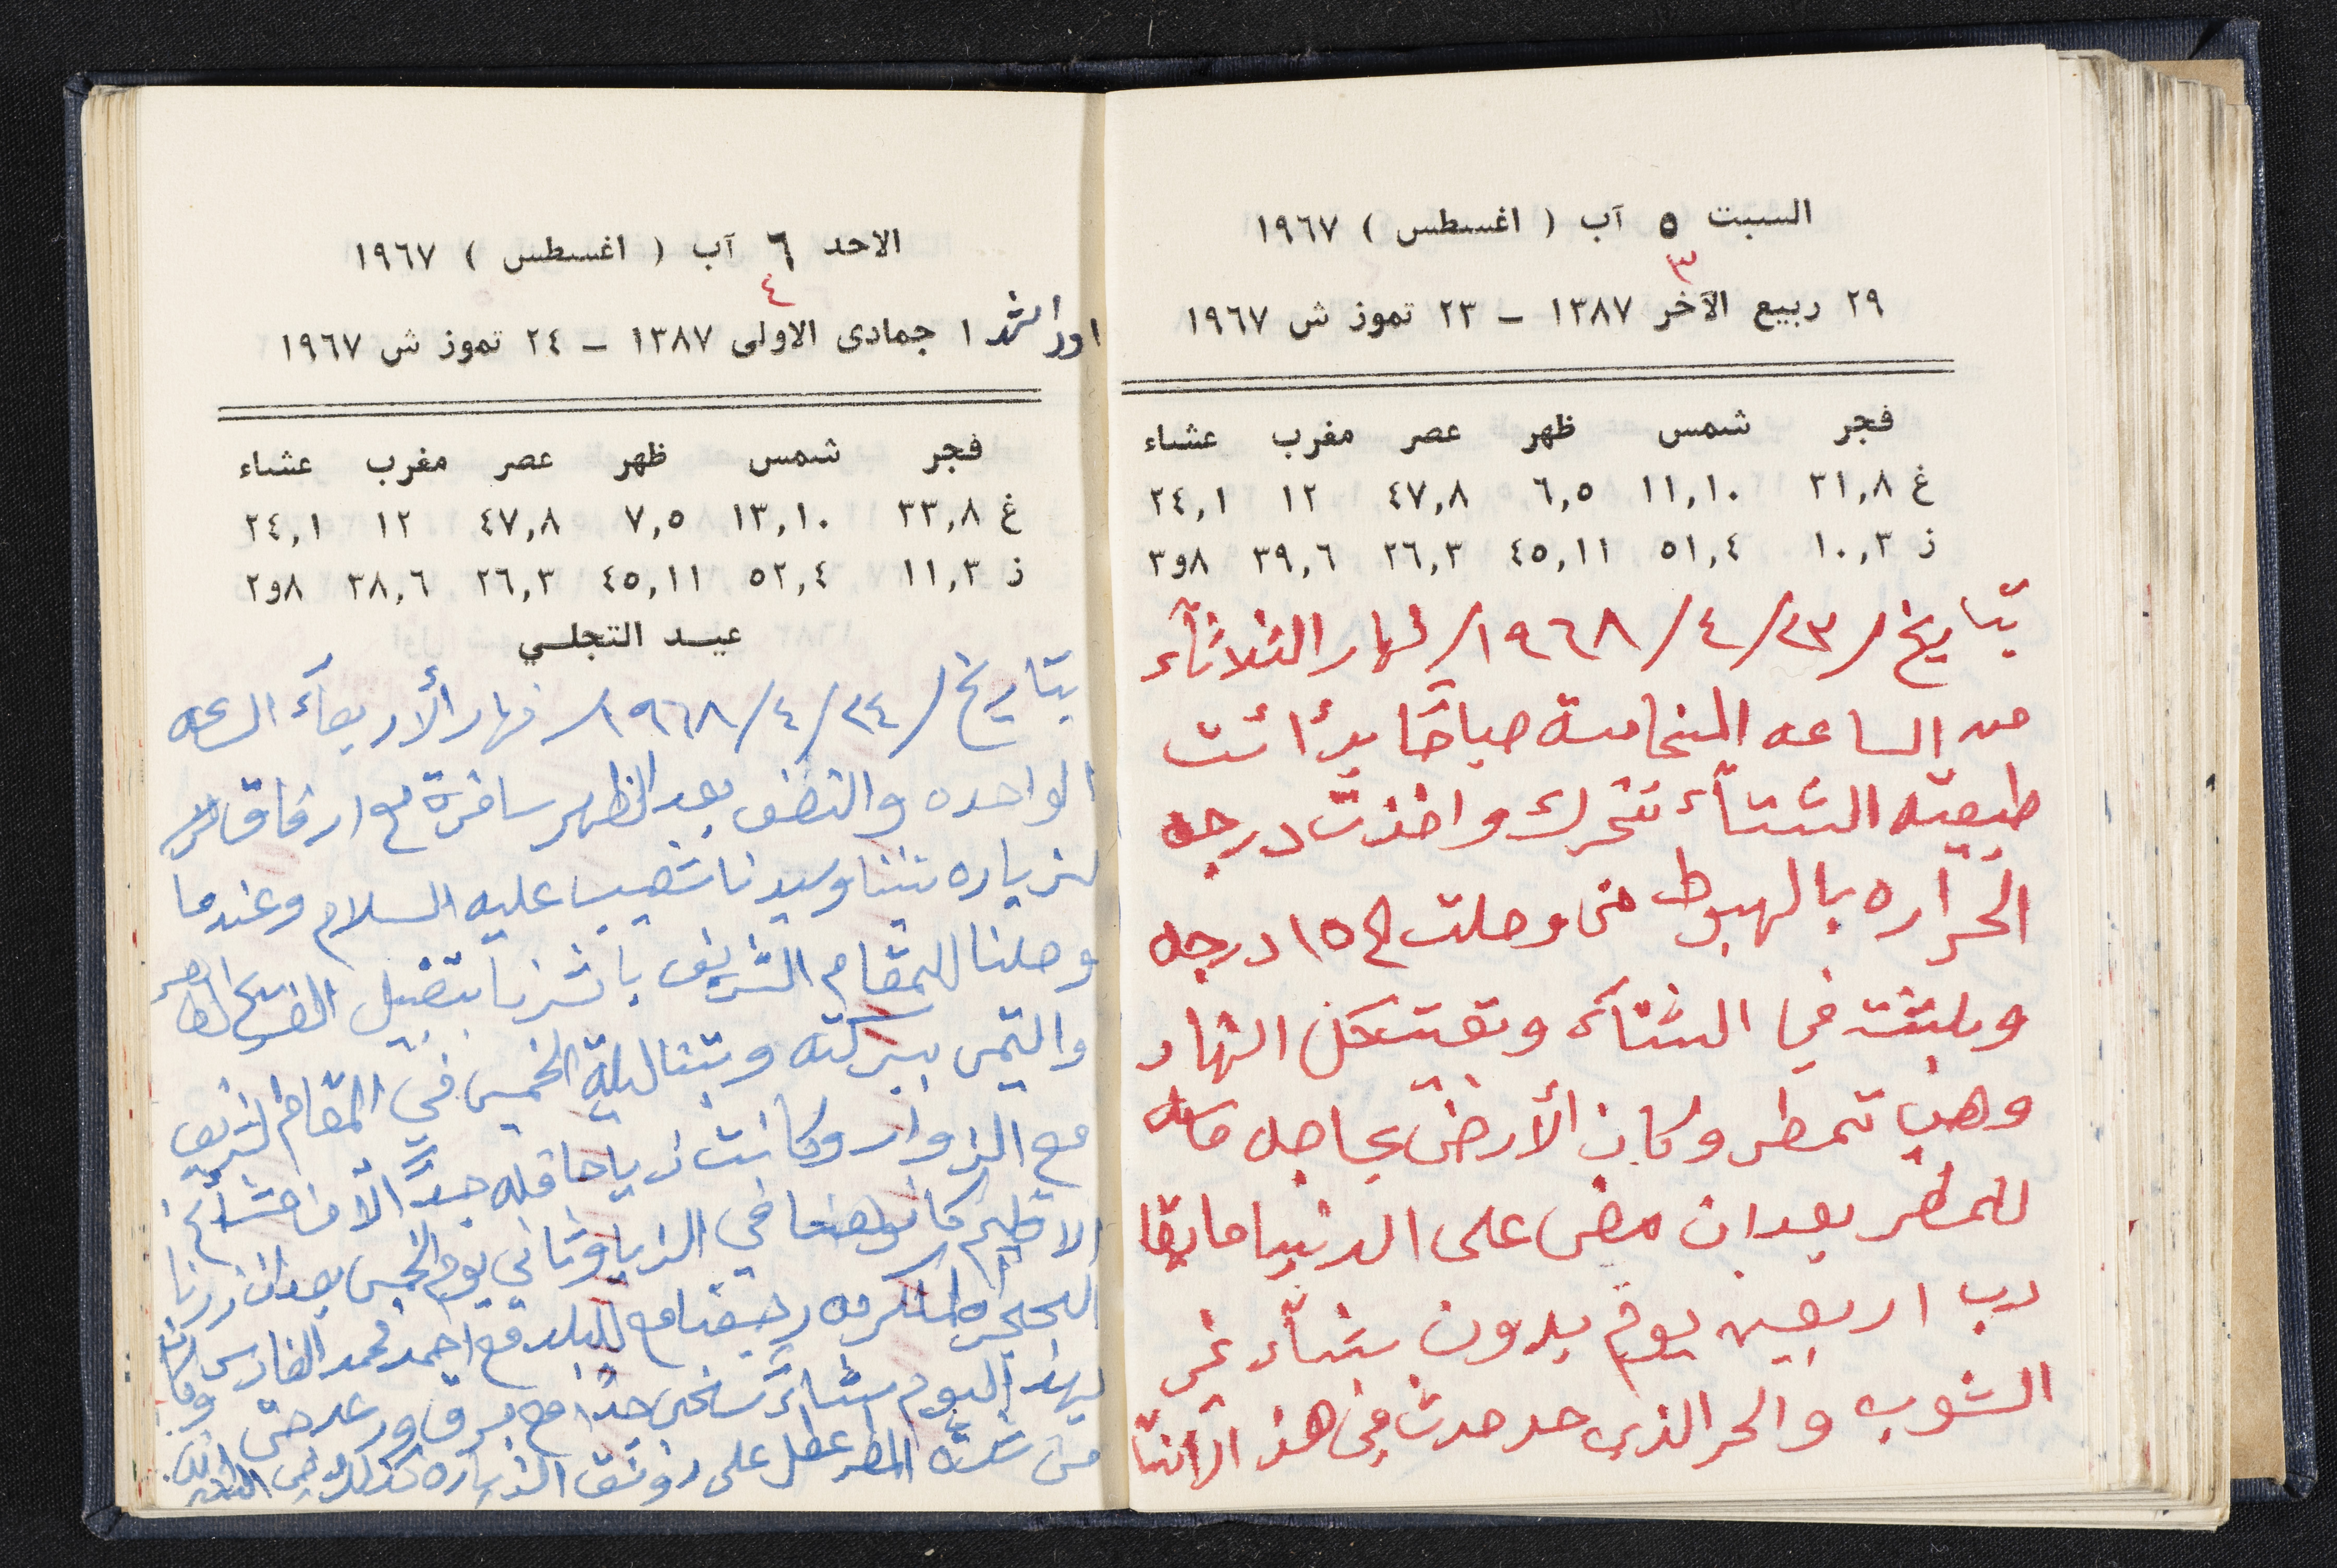 السبت ٥ آب ( اغسطس ) ١٩٦٧
٣
٢٩ ربيع الآخر ١٣٨٧ – ٢٣ تموز ش ١٩٦٧
فجر شمس ظهر عصر مغرب عشاء
غ ٣١,٨ ١١,١٠ ٦,٥ ٤٧,٨ ١٢ ٢٤,١
ز ١٠,٣ ٥١,٤ ٤٥,١١ ٢٦,٣ ٣٩,٦ ٨و٣
بتاريخ / ٢٣ / ٤ / ١٩٦٨ / نهار الثلاثآء
من الساعه الخامسة صباحًا بدأئت
طبيعته الشتآء تتحرك واخذت درجه
الحراره بالهبوط حتى وصلت لح ١٥ درجه
وبلشت في الشتآء وبقيت كل النهار
وهي تمطر وكان الأرض بحاجه ماسه
للمطر بعد ان مضى على الدنيا ما يقا
رب اربعين يوم بدون شتآء غير
الشوب والحر الذي حد حدث في هذ الأثنا
الاحد ٦ آب ( اغسطس ) ١٩٦٧
٤
١ جمادى الاولى ١٣٨٧ – ٢٤ تموز ش ١٩٦٧
فجر شمس ظهر عصر مغرب عشاء
غ ٣٣,٨ ١٣,١٠ ٧,٥ ٤٧,٨ ١٢ ٢٤,١
ز ١١,٣ ٥٢,٤ ٤٥,١١ ٢٦,٣ ٣٨,٦ ٨و٢
عيد التجلي
بتاريخ / ٢٤ / ٤ / ١٩٦٨ / نهار الأربعآء الساعه
الواحده والنصف بعد الظهر سافرة مع
لزياره نبينا وسيدنا شعيب عليه السلام وعندما
وصلنا للمقام الشريف باشرنا بتقبيل الضريح الطاهر
والتمس ببركته وبتنا ليلة الخميس في المقام الشريف
مع الزوار وكانت زيا حافله جدًا الآن مشآئخ
الاقليم كانو هنا في الزيا وثاني يوم الخميس بعد ان زرنا
المكرمه رجعنا مع للبلد مع احمد محمد الفارس وكان
بهذ اليوم شتاءً سخي جدًا مع برق ورعد حتى
من شدة المطر عطل على رونق الزياره